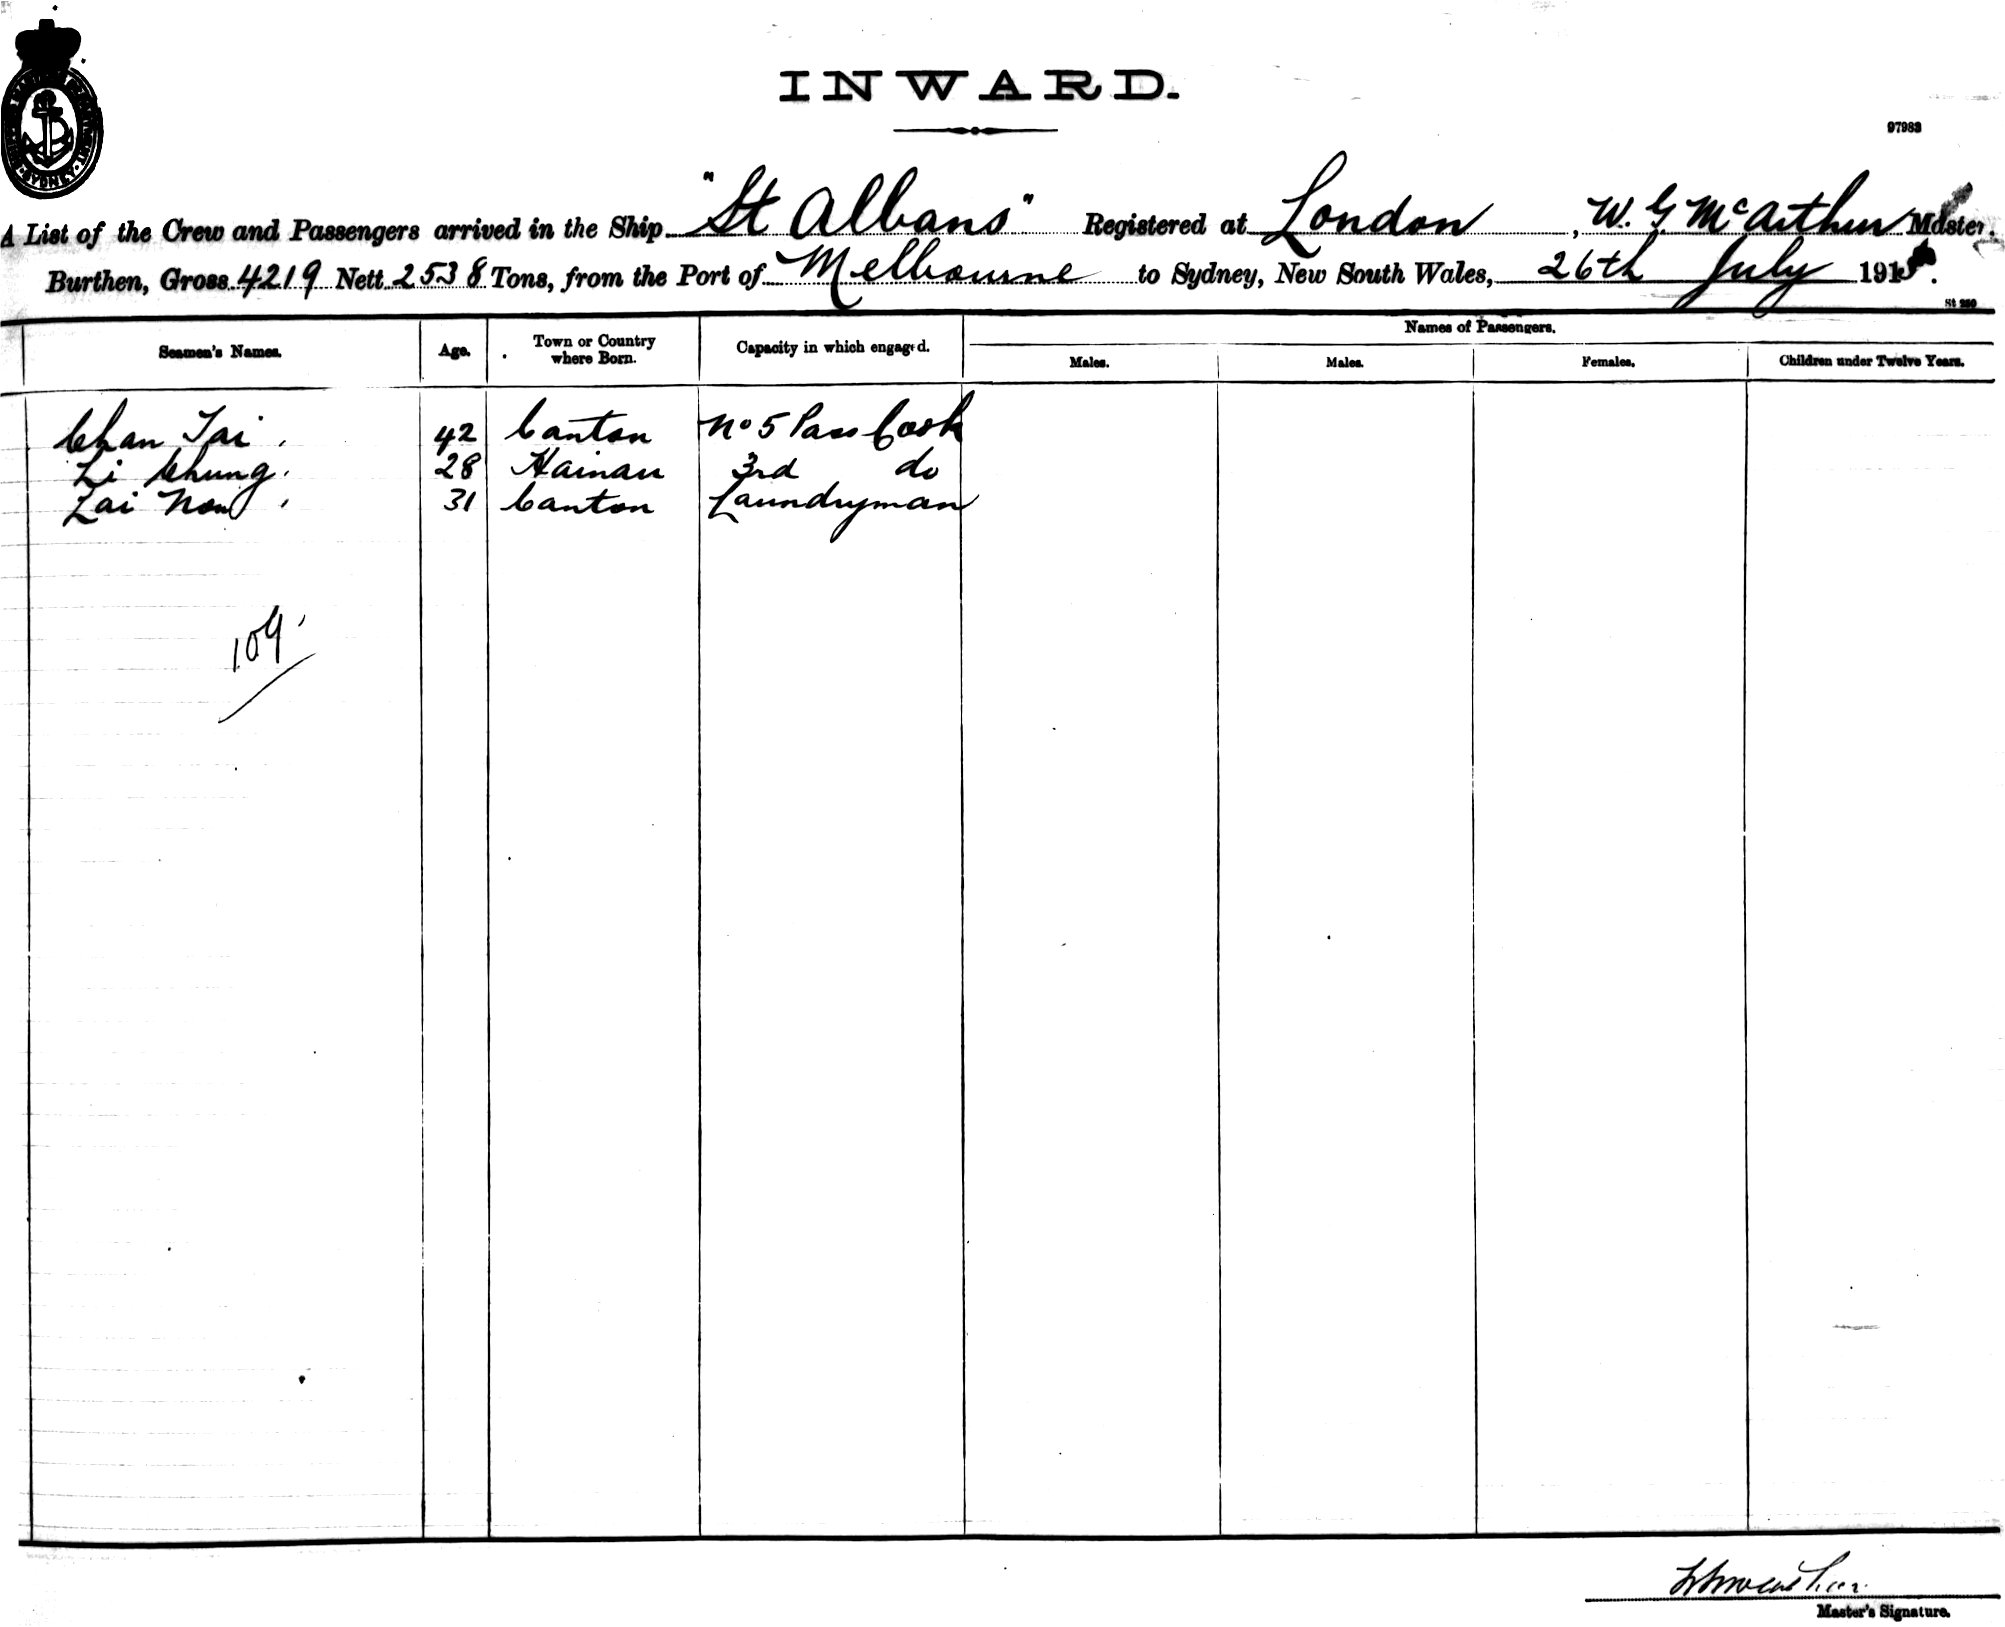 INWARD.
97983
A List of the Crew and Passengers arrived in the Ship "St Albans" Registered at London, W. G McArthur Master,
Burthen, Gross 4219 Nett 2538 Tons, from the Port of Melbourne to Sydney, New South Wales, 26th July 191
St 280
Names of Passengers.
Seamen's Names. Age. Town or Country where Born. Capacity in which engaged. Males. Males. Females. Children under Twelve Years.
Chan Tai 42 Canton No 5 Pass Cook
Li Chung 28 Hainan 3rd do
Lai 31 Canton Laundryman
109
Master's Signature.
SYDNEY